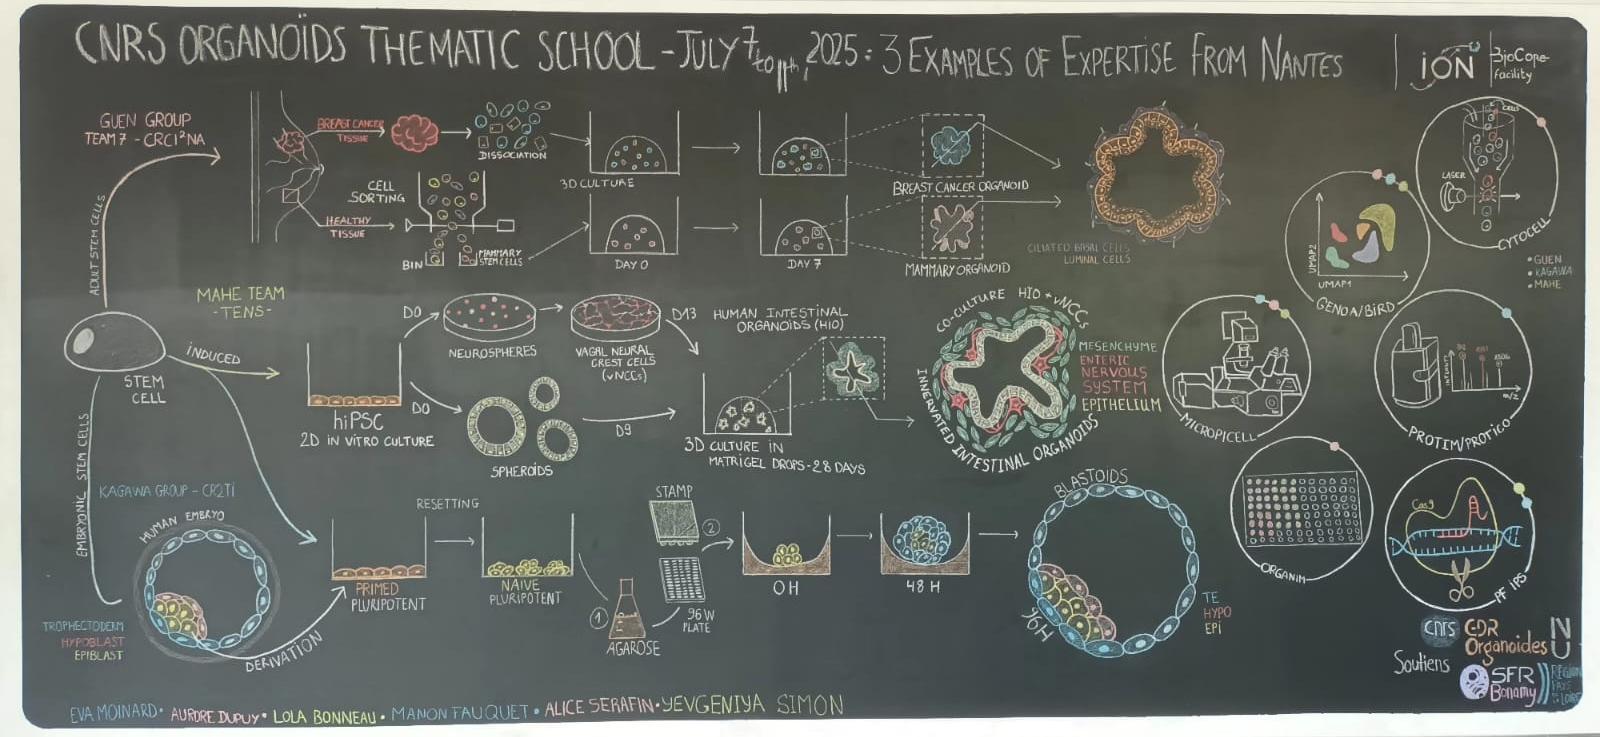 CNRS ORGANOÏDS THEMATIC SCHOOL - JULY 7 to 11th, 2025 : 3 EXAMPLES OF EXPERTISE FROM NANTES
iON
BioCore facility
GUEN GROUP
TEAM 7 - CRCI²NA
BREAST CANCER
TISSUE
DISSOCIATION
CELL
SORTING
HEALTHY
TISSUE
BIN
MAMMARY
STEM CELLS
3D CULTURE
DAY 0
DAY 7
BREAST CANCER ORGANOID
MAMMARY ORGANOID
CILIATED BASAL CELLS
LUMINAL CELLS
ADULT STEM CELLS
STEM
CELL
INDUCED
EMBRYONIC STEM CELLS
MAHE TEAM
-TENS-
hiPSC
2D IN VITRO CULTURE
D0
NEUROSPHERES
VAGAL NEURAL
CREST CELLS
(vNCCs)
D13
D0
SPHEROÏDS
D9
HUMAN INTESTINAL
ORGANOÏDS (HIO)
3D CULTURE IN
MATRIGEL DROPS - 28 DAYS
CO-CULTURE HIO + vNCCs
INNERVATED INTESTINAL ORGANOIDS
MESENCHYME
ENTERIC
NERVOUS
SYSTEM
EPITHELIUM
KAGAWA GROUP - CR2TI
HUMAN EMBRYO
TROPHECTODERM
HYPOBLAST
EPIBLAST
DERIVATION
PRIMED
PLURIPOTENT
RESETTING
NAIVE
PLURIPOTENT
1
AGAROSE
STAMP
96W
PLATE
2
0H
48 H
BLASTOIDS
96H
TE
HYPO
EPI
CELLS
LASER
CYTOCELL
UMAP2
UMAP1
GENOA/BIRD
• GUEN
• KAGAWA
• MAHE
MICROPICELL
m/z
PROTIM/PROTICO
ORGANIM
Cas9
PF iPS
Soutiens
cnrs
GDR
Organoides
N
U
SFR
Bonamy
EVA MOINARD • AURORE DUPUY • LOLA BONNEAU • MANON FAUQUET • ALICE SERAFIN • YEVGENIYA SIMON